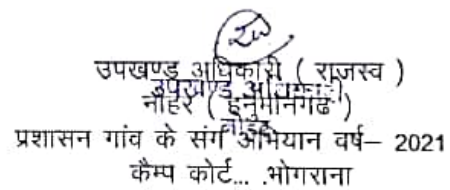 उपखण्ड अधिकारी ( राजस्व )
उपखण्ड अधिकारी
नोहर ( हनुमानगढ )
नोहर
प्रशासन गांव के संग अभियान वर्ष– 2021
कैम्प कोर्ट... .भोगराना